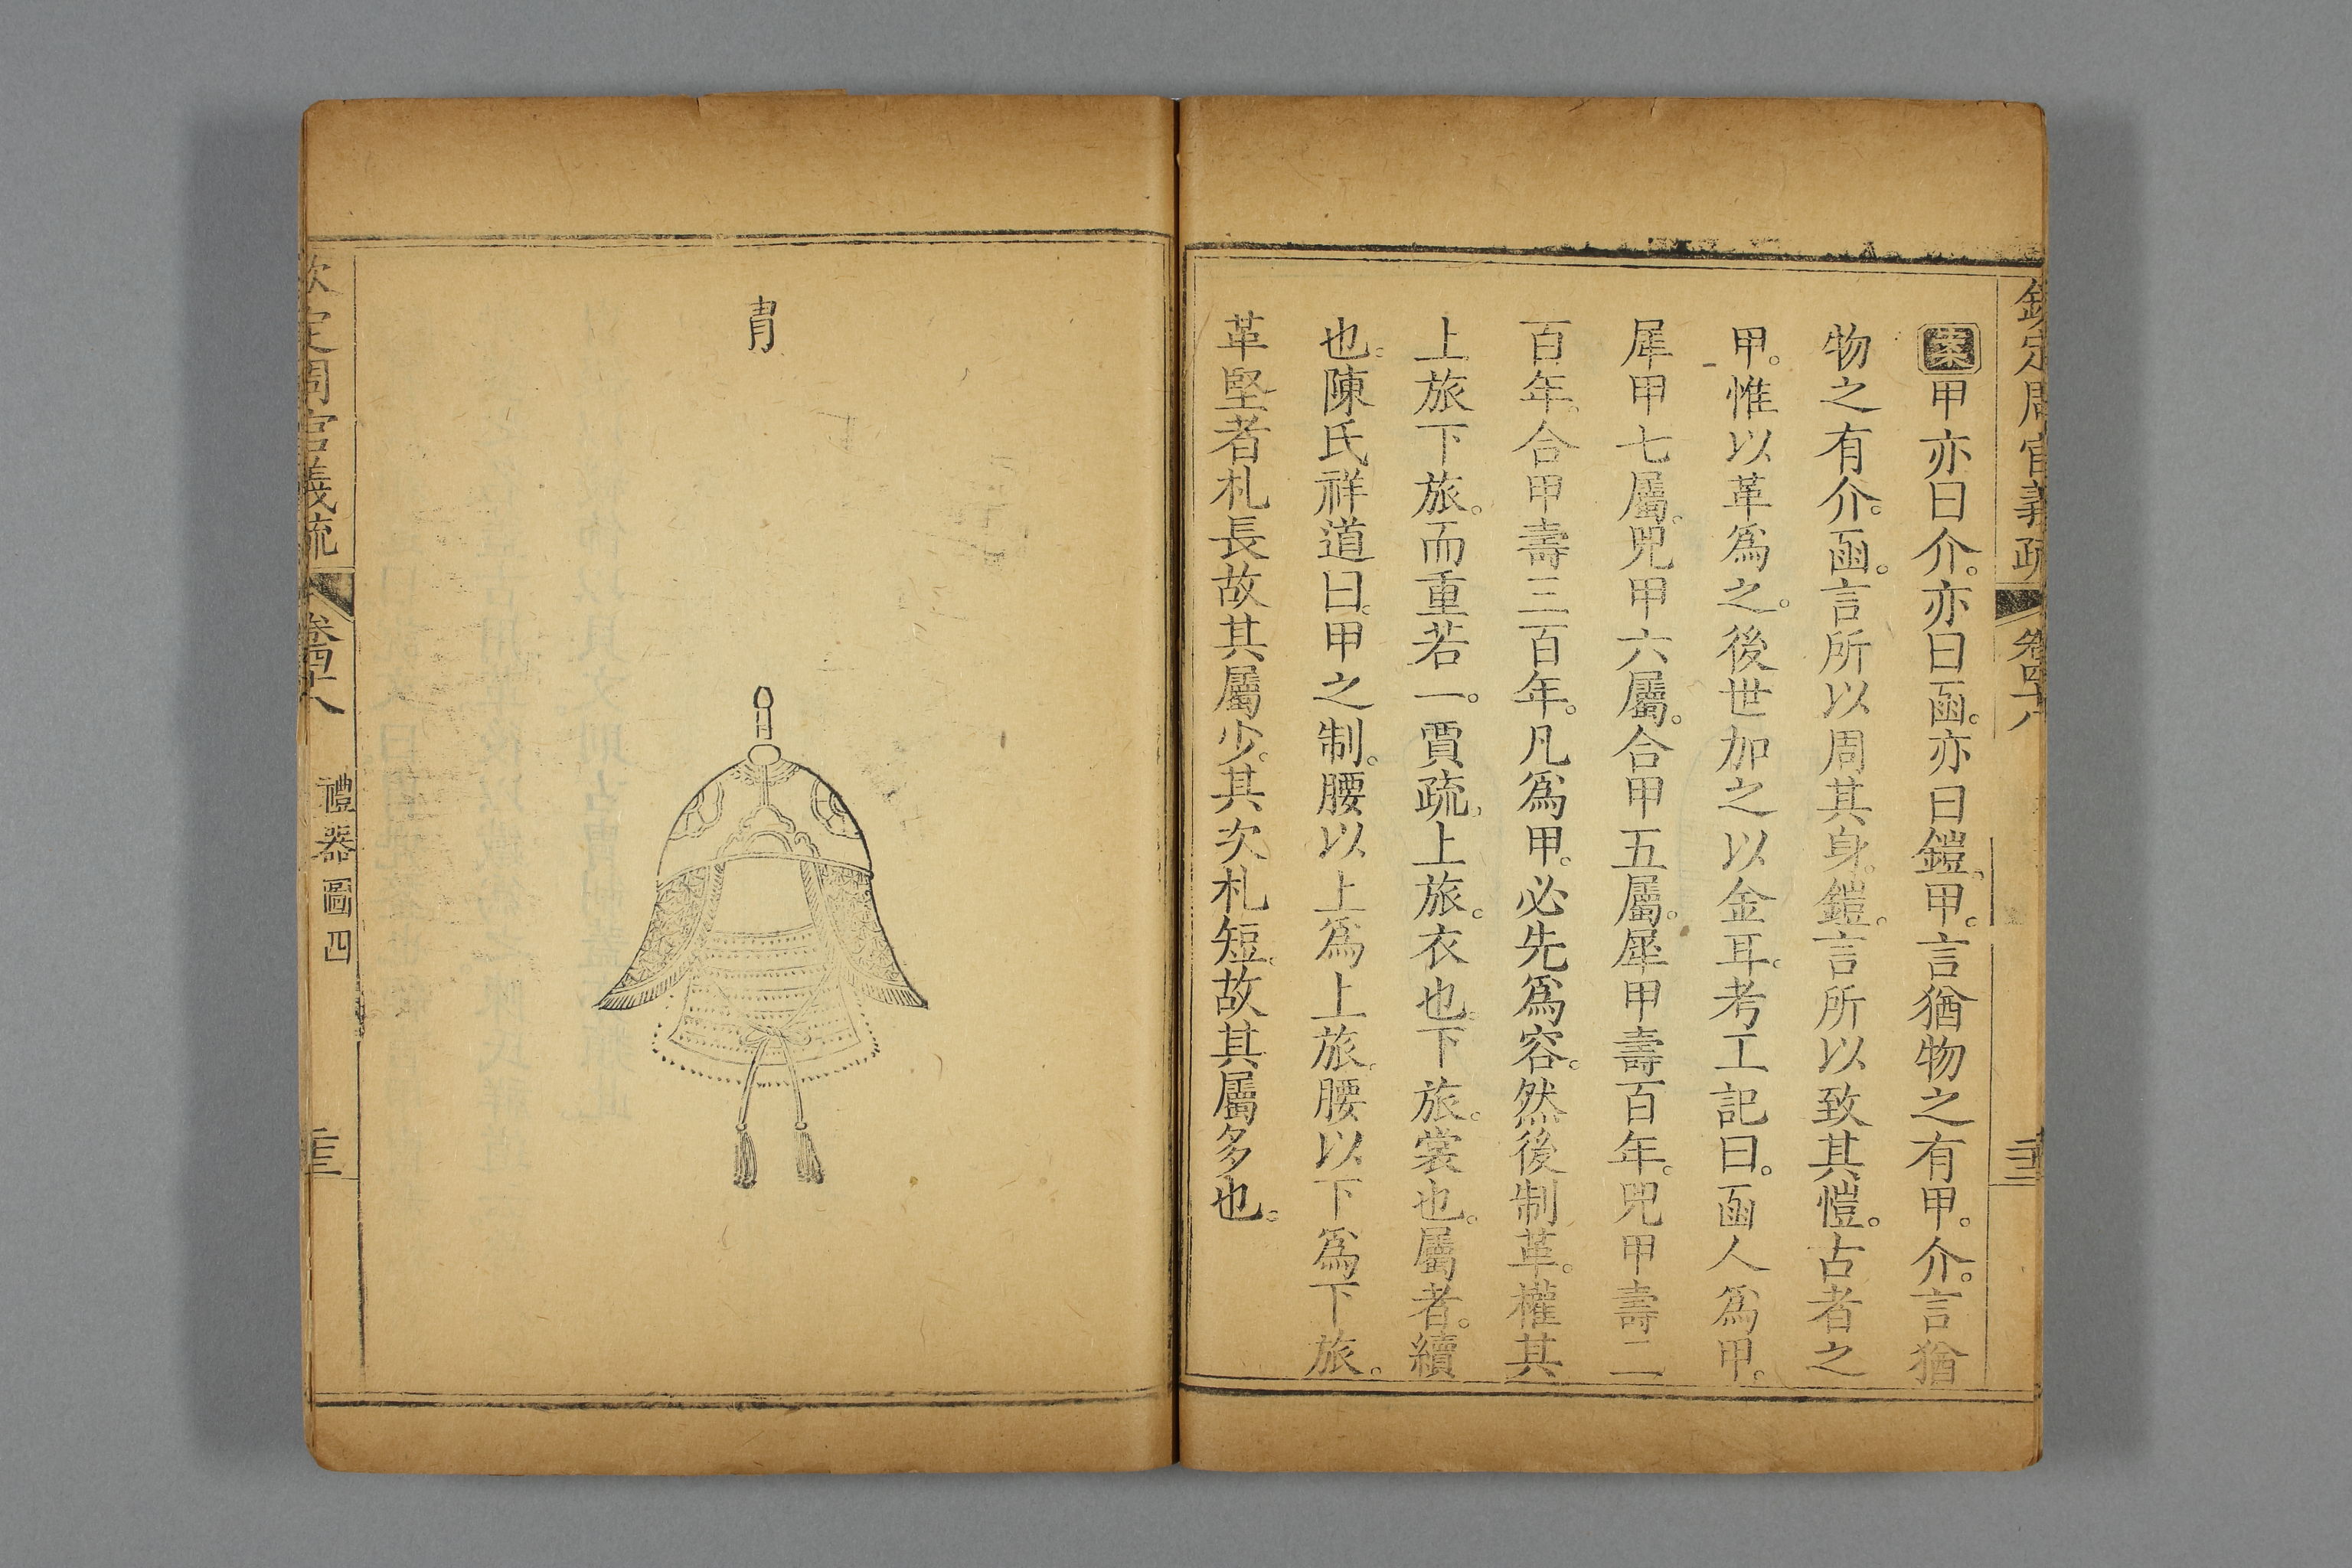 欽定周官義疏 卷四十八
案甲亦曰介。亦曰函。亦曰鎧。甲。言猶物之有甲。介。言猶
物之有介。函。言所以周其身。鎧。言所以致其愷。古者之
甲。惟以革爲之。後世加之以金耳。考工記曰。函人爲甲。
犀甲七屬。兕甲六屬。合甲五屬。犀甲壽百年。兕甲壽二
百年。合甲壽三百年。凡爲甲。必先爲容。然後制革。權其
上旅下旅。而重若一。賈疏。上旅。衣也。下旅。裳也。屬者。續
也。陳氏祥道曰。甲之制。腰以上爲上旅。腰以下爲下旅。
革堅者札長故其屬少。其次札短。故其屬多也。
冑
欽定周官義疏 卷四十八 禮器圖四